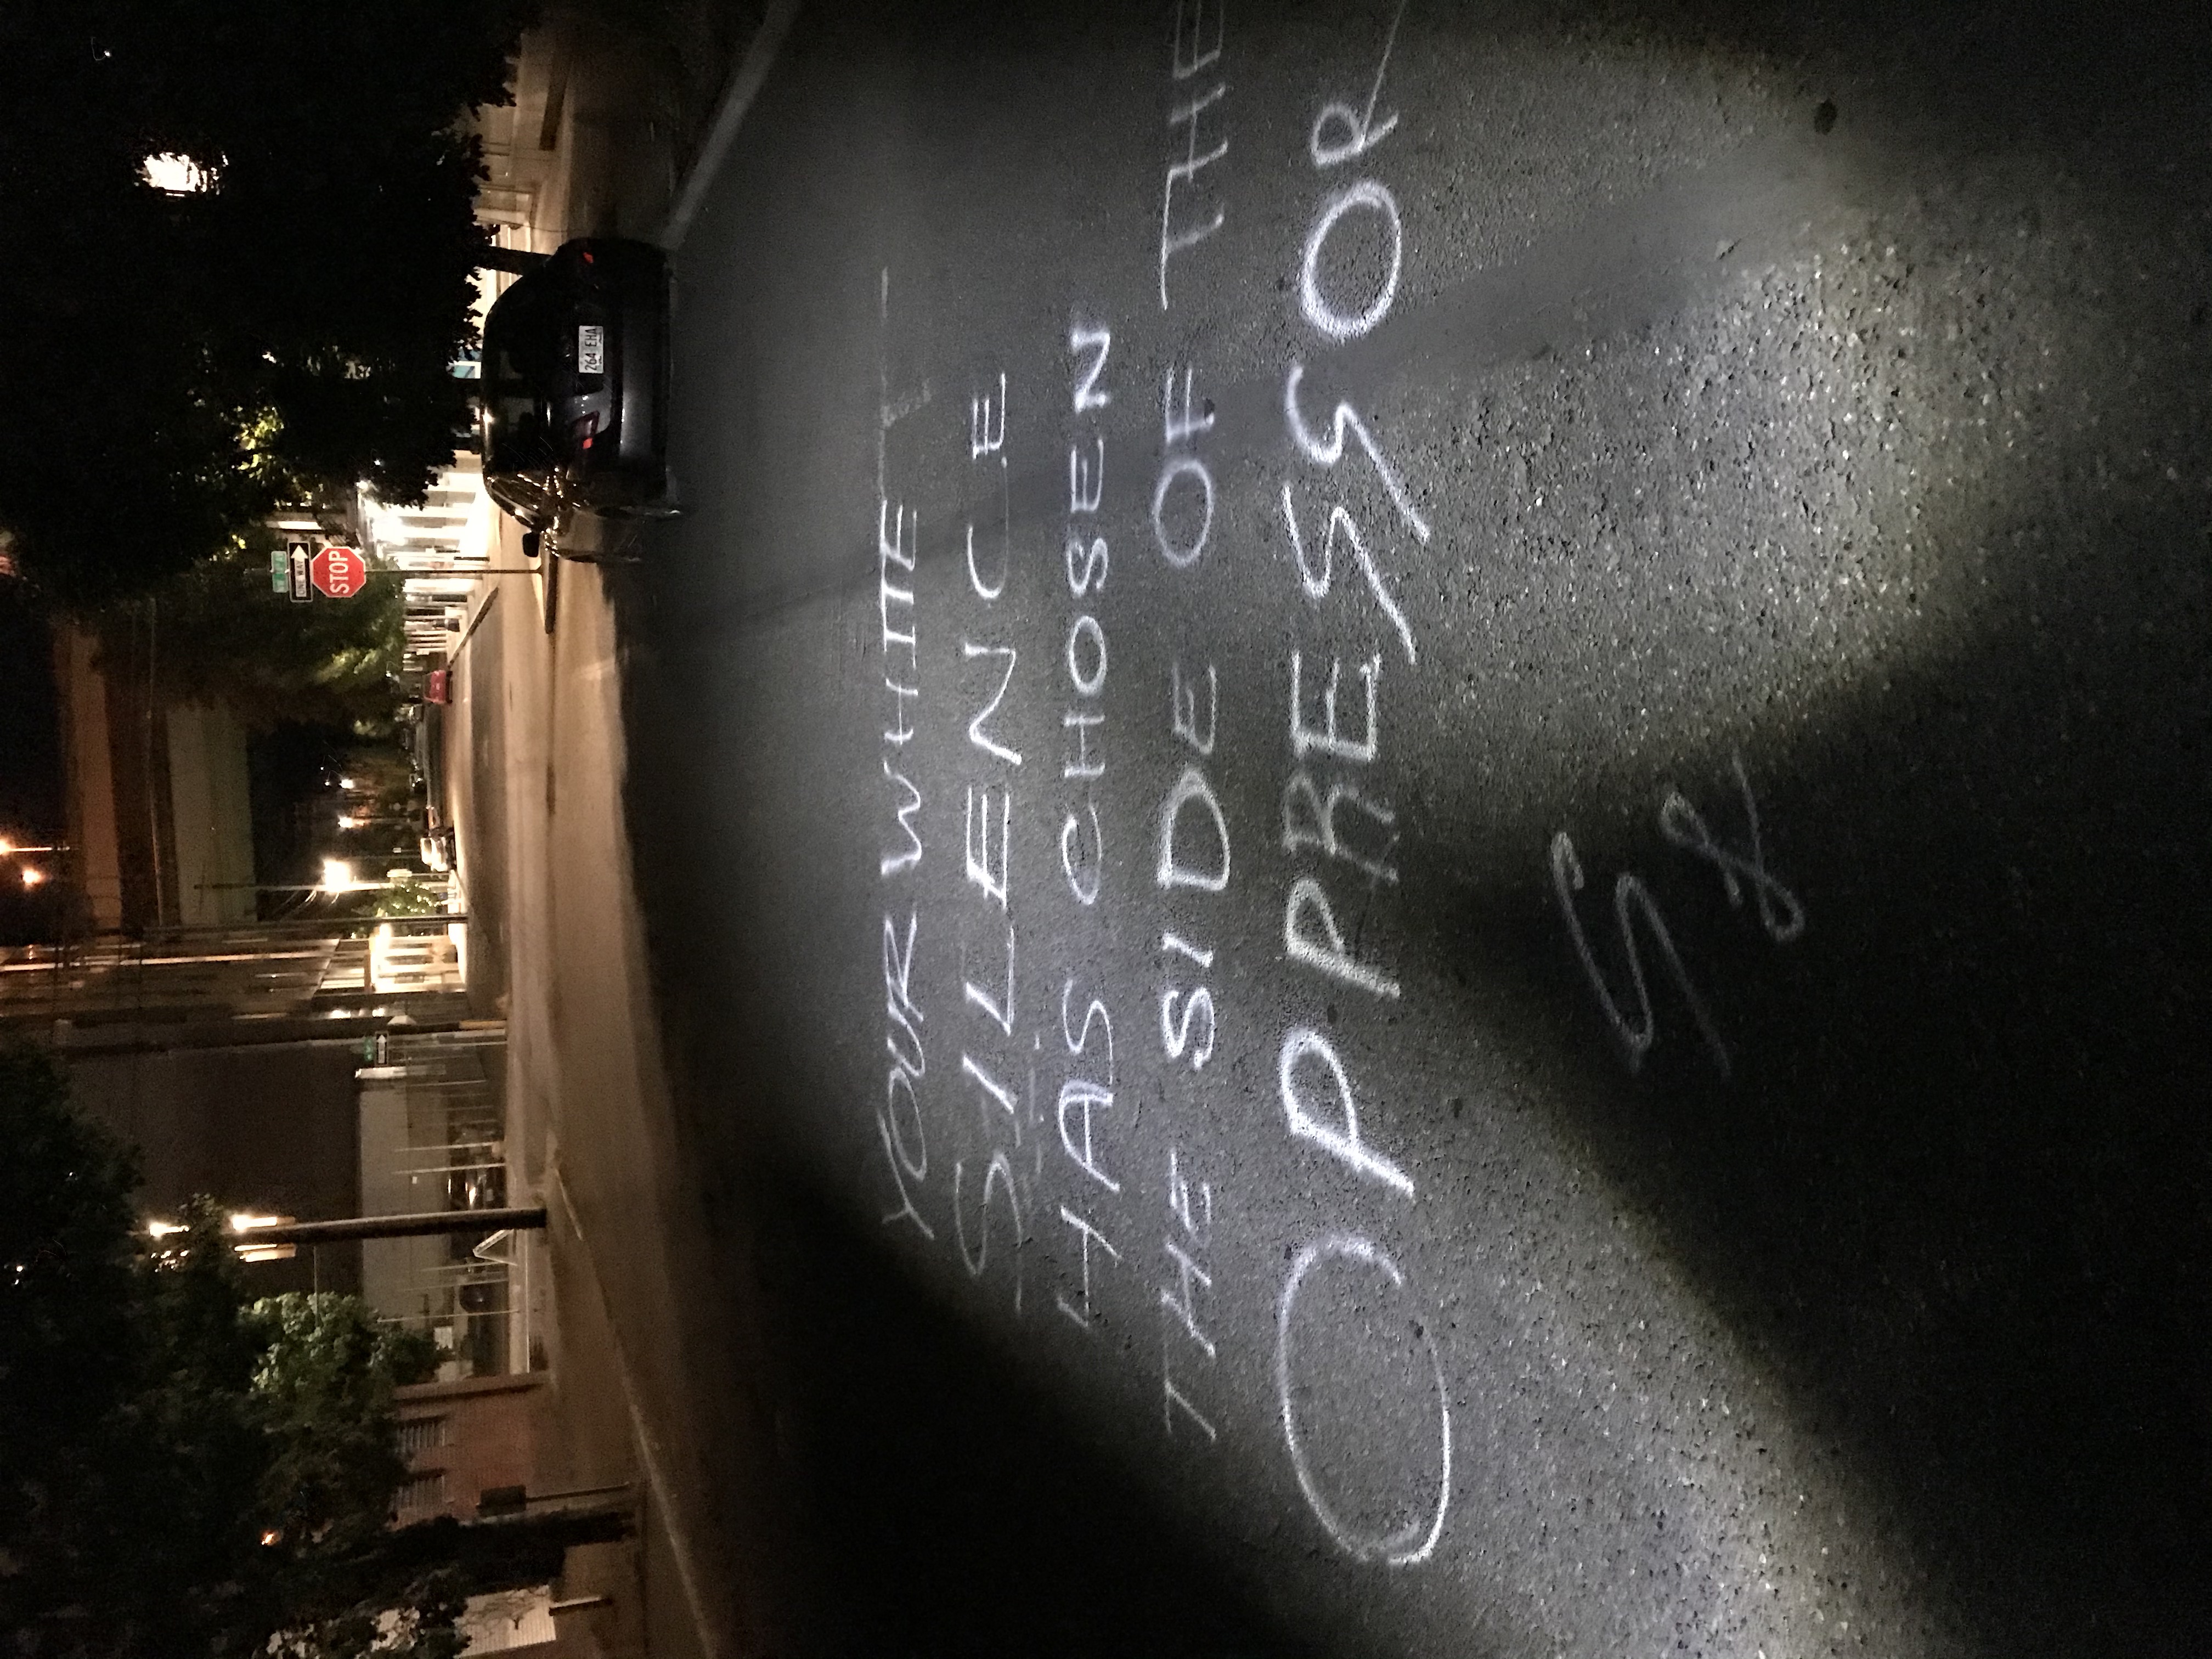 ONE WAY
STOP
264 EHA
YOUR WHITE
SILENCE
HAS CHOSEN
THE SIDE OF THE
OPPRESSOR